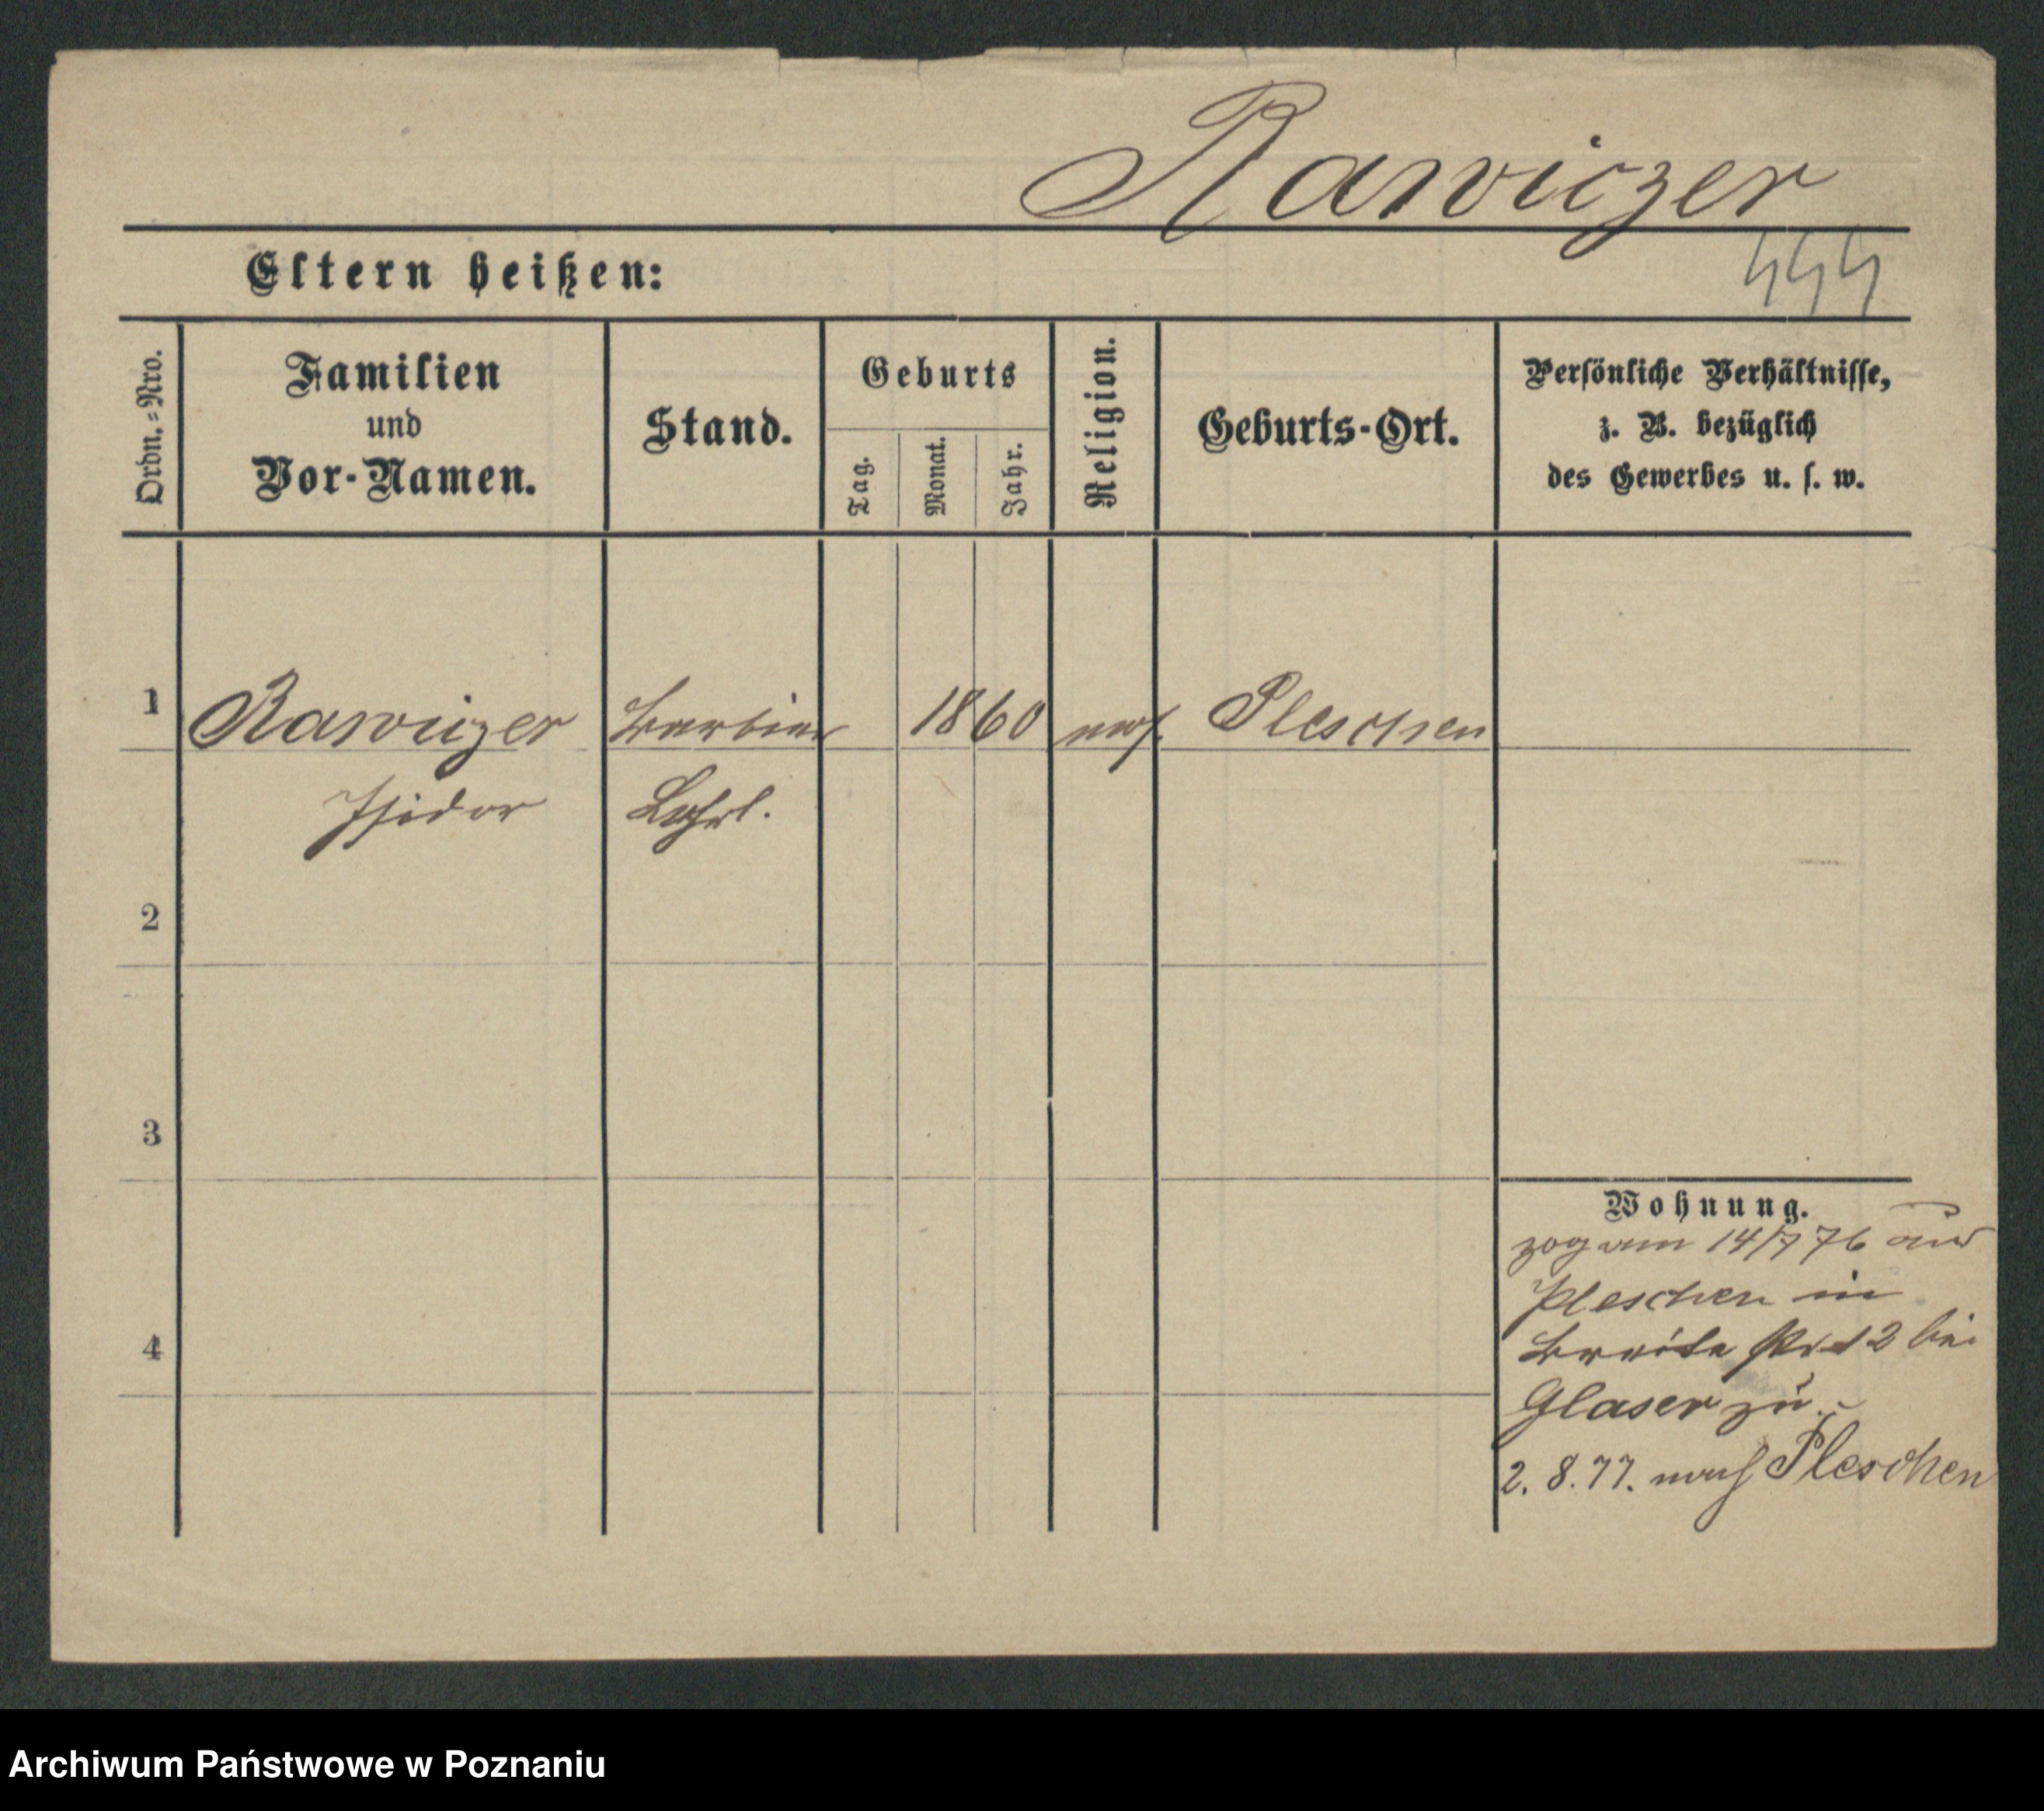 Rawiczer
444
Eltern heißen:
Ordn.=Nro.
Familien
und
Vor-Namen.
Stand.
Geburts
Tag.
Monat.
Jahr.
Religion.
Geburts-Ort.
Persönliche Verhältnisse,
z. B. bezüglich
des Gewerbes u. s. w.
1
Rawiczer
Barbier
1860
mos.
Pleschen
Isidor
Lehrl.
2
3
4
Wohnung.
zog am 14/7 76 aus
Pleschen in
Breite Str 12 bei
Glaser zu.
2. 8. 77. nach Pleschen
Archiwum Państwowe w Poznaniu